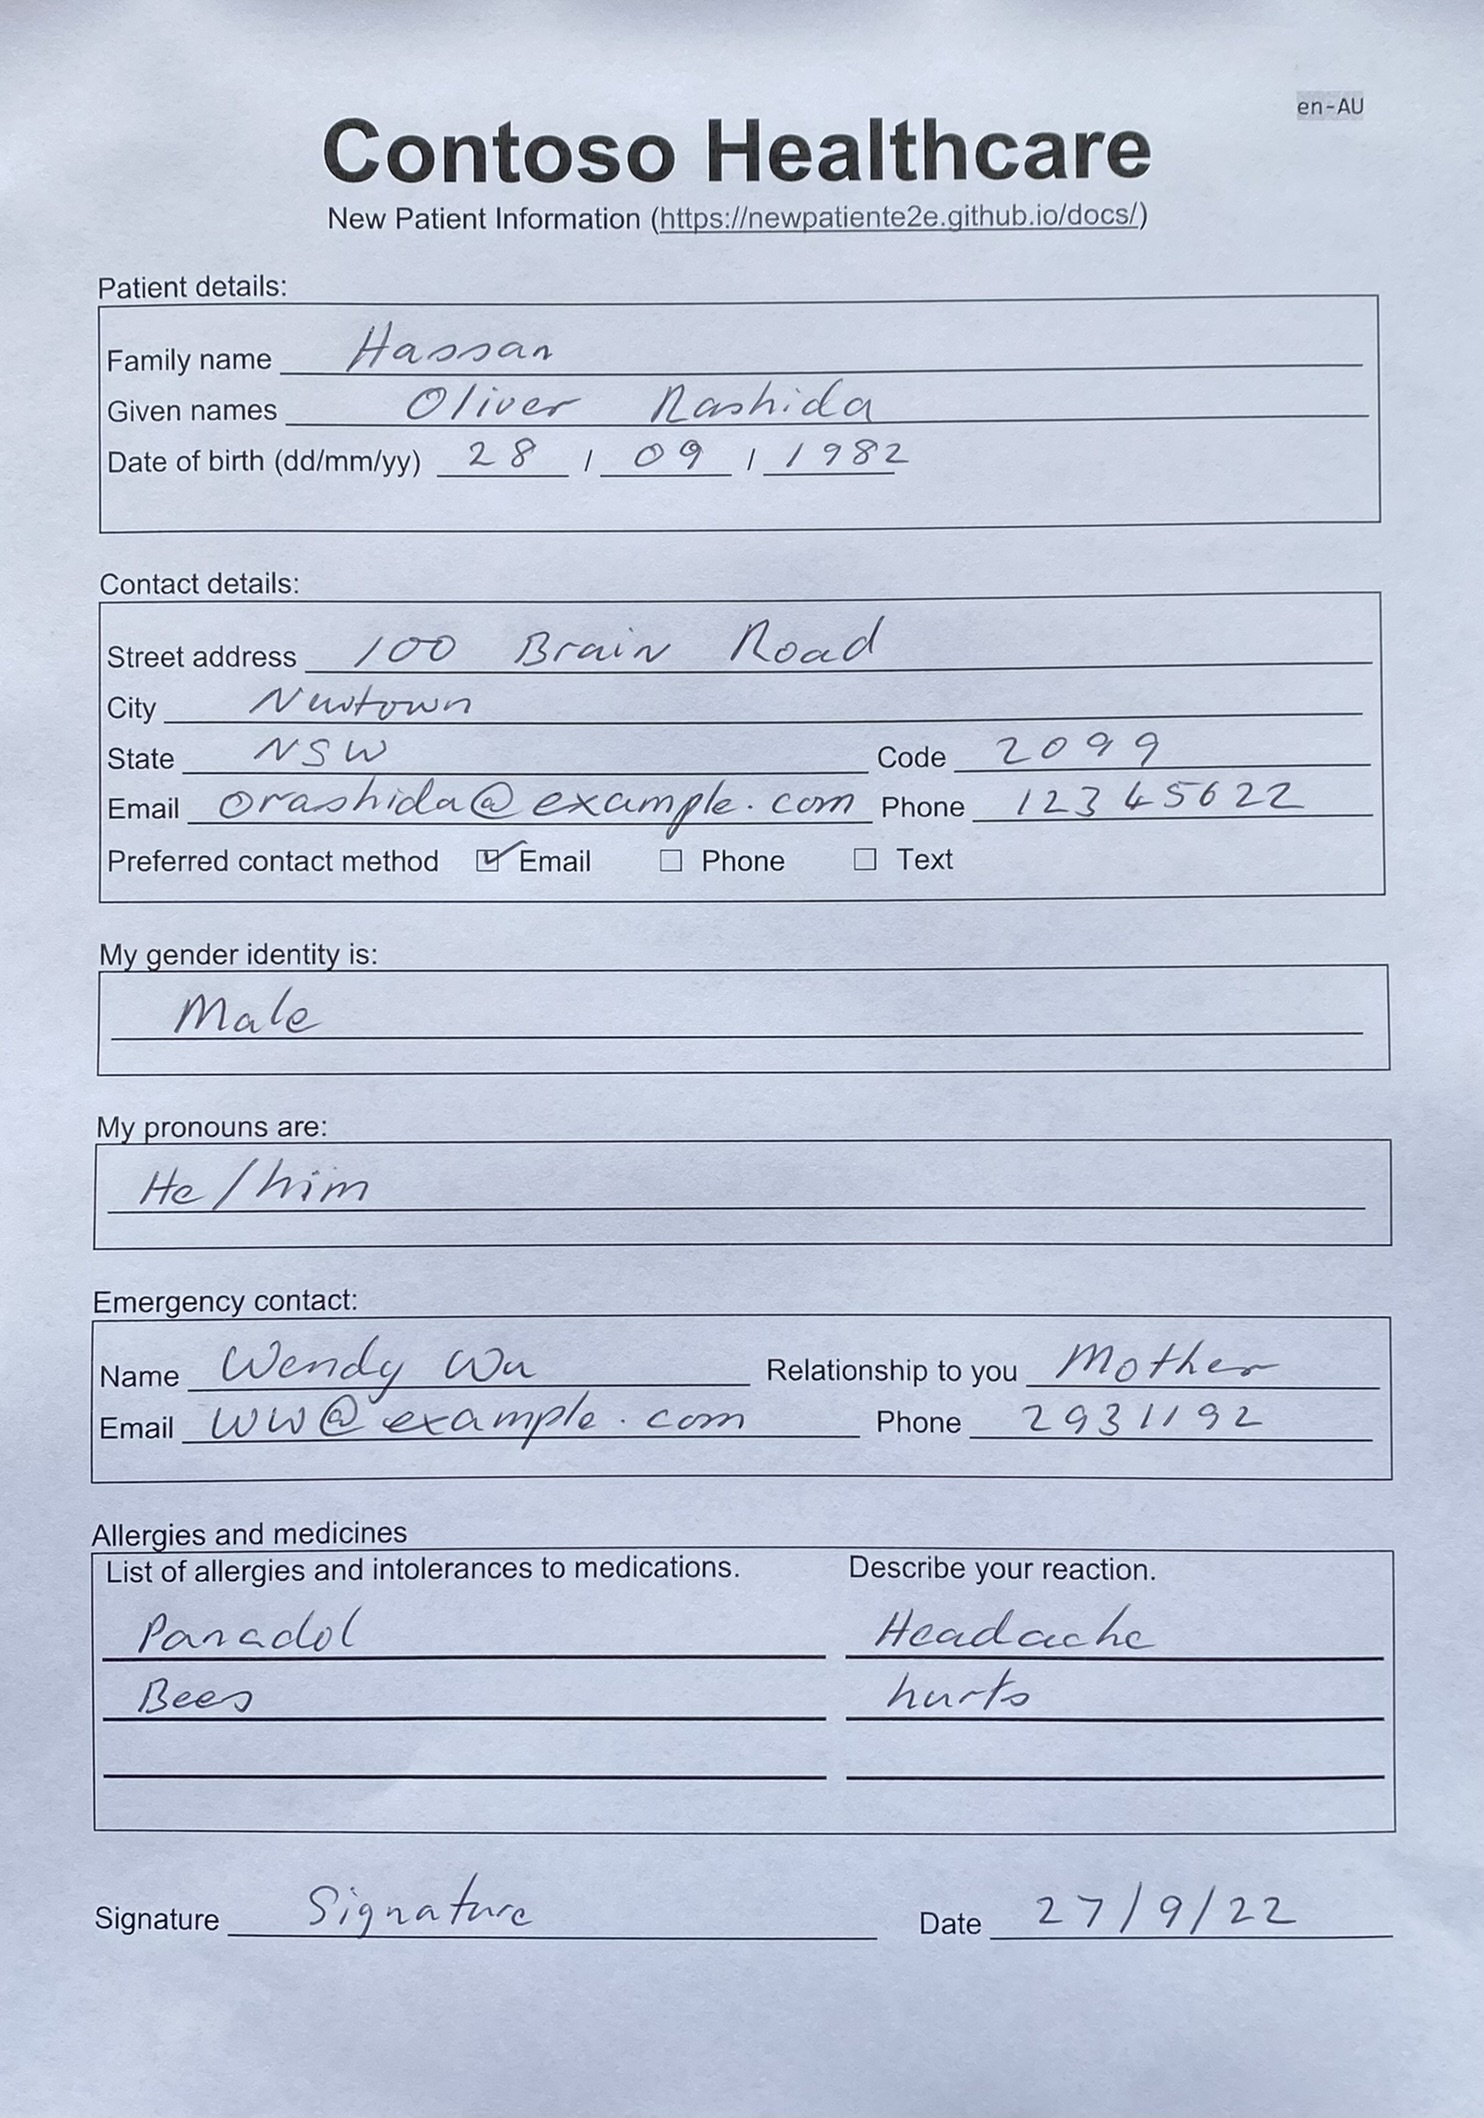 en-AU
Contoso Healthcare
New Patient Information (https://newpatiente2e.github.io/docs/)
Patient details:
Family name Hassan
Given names Oliver Rashida
Date of birth (dd/mm/yy) 28 / 09 / 1982
Contact details:
Street address 100 Brain Road
City Newtown
State NSW Code 2099
Email orashida@example.com Phone 12345622
Preferred contact method ☑ Email ☐ Phone ☐ Text
My gender identity is:
Male
My pronouns are:
He/him
Emergency contact:
Name Wendy Wu Relationship to you Mother
Email ww@example.com Phone 2931192
Allergies and medicines
List of allergies and intolerances to medications. Describe your reaction.
Panadol Headache
Bees hurts
Signature Signature Date 27/9/22